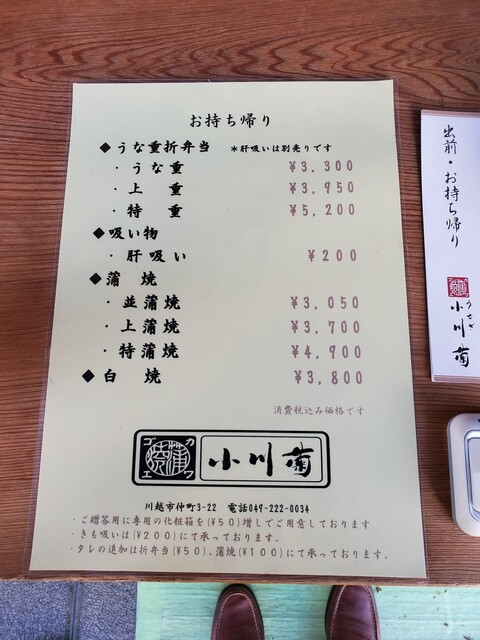 お持ち帰り
◆うな重折弁当 *肝吸いは別売りです
・うな重 ¥3,300
・上重 ¥3,950
・特重 ¥5,200
◆吸い物
・肝吸い ¥200
◆蒲焼
・並蒲焼 ¥3,050
・上蒲焼 ¥3,700
・特蒲焼 ¥4,900
◆白焼 ¥3,800
消費税込み価格です
カワゴエ
蒲焼
小川菊
川越市仲町3-22 電話049-222-0034
・ご贈答用に専用の化粧箱を(¥50)増しでご用意しております
・きも吸いは(¥200)にて承っております.
・タレの追加は折弁当(¥50)、蒲焼(¥100)にて承っております.
出前・お持ち帰り
うなぎ
小川菊